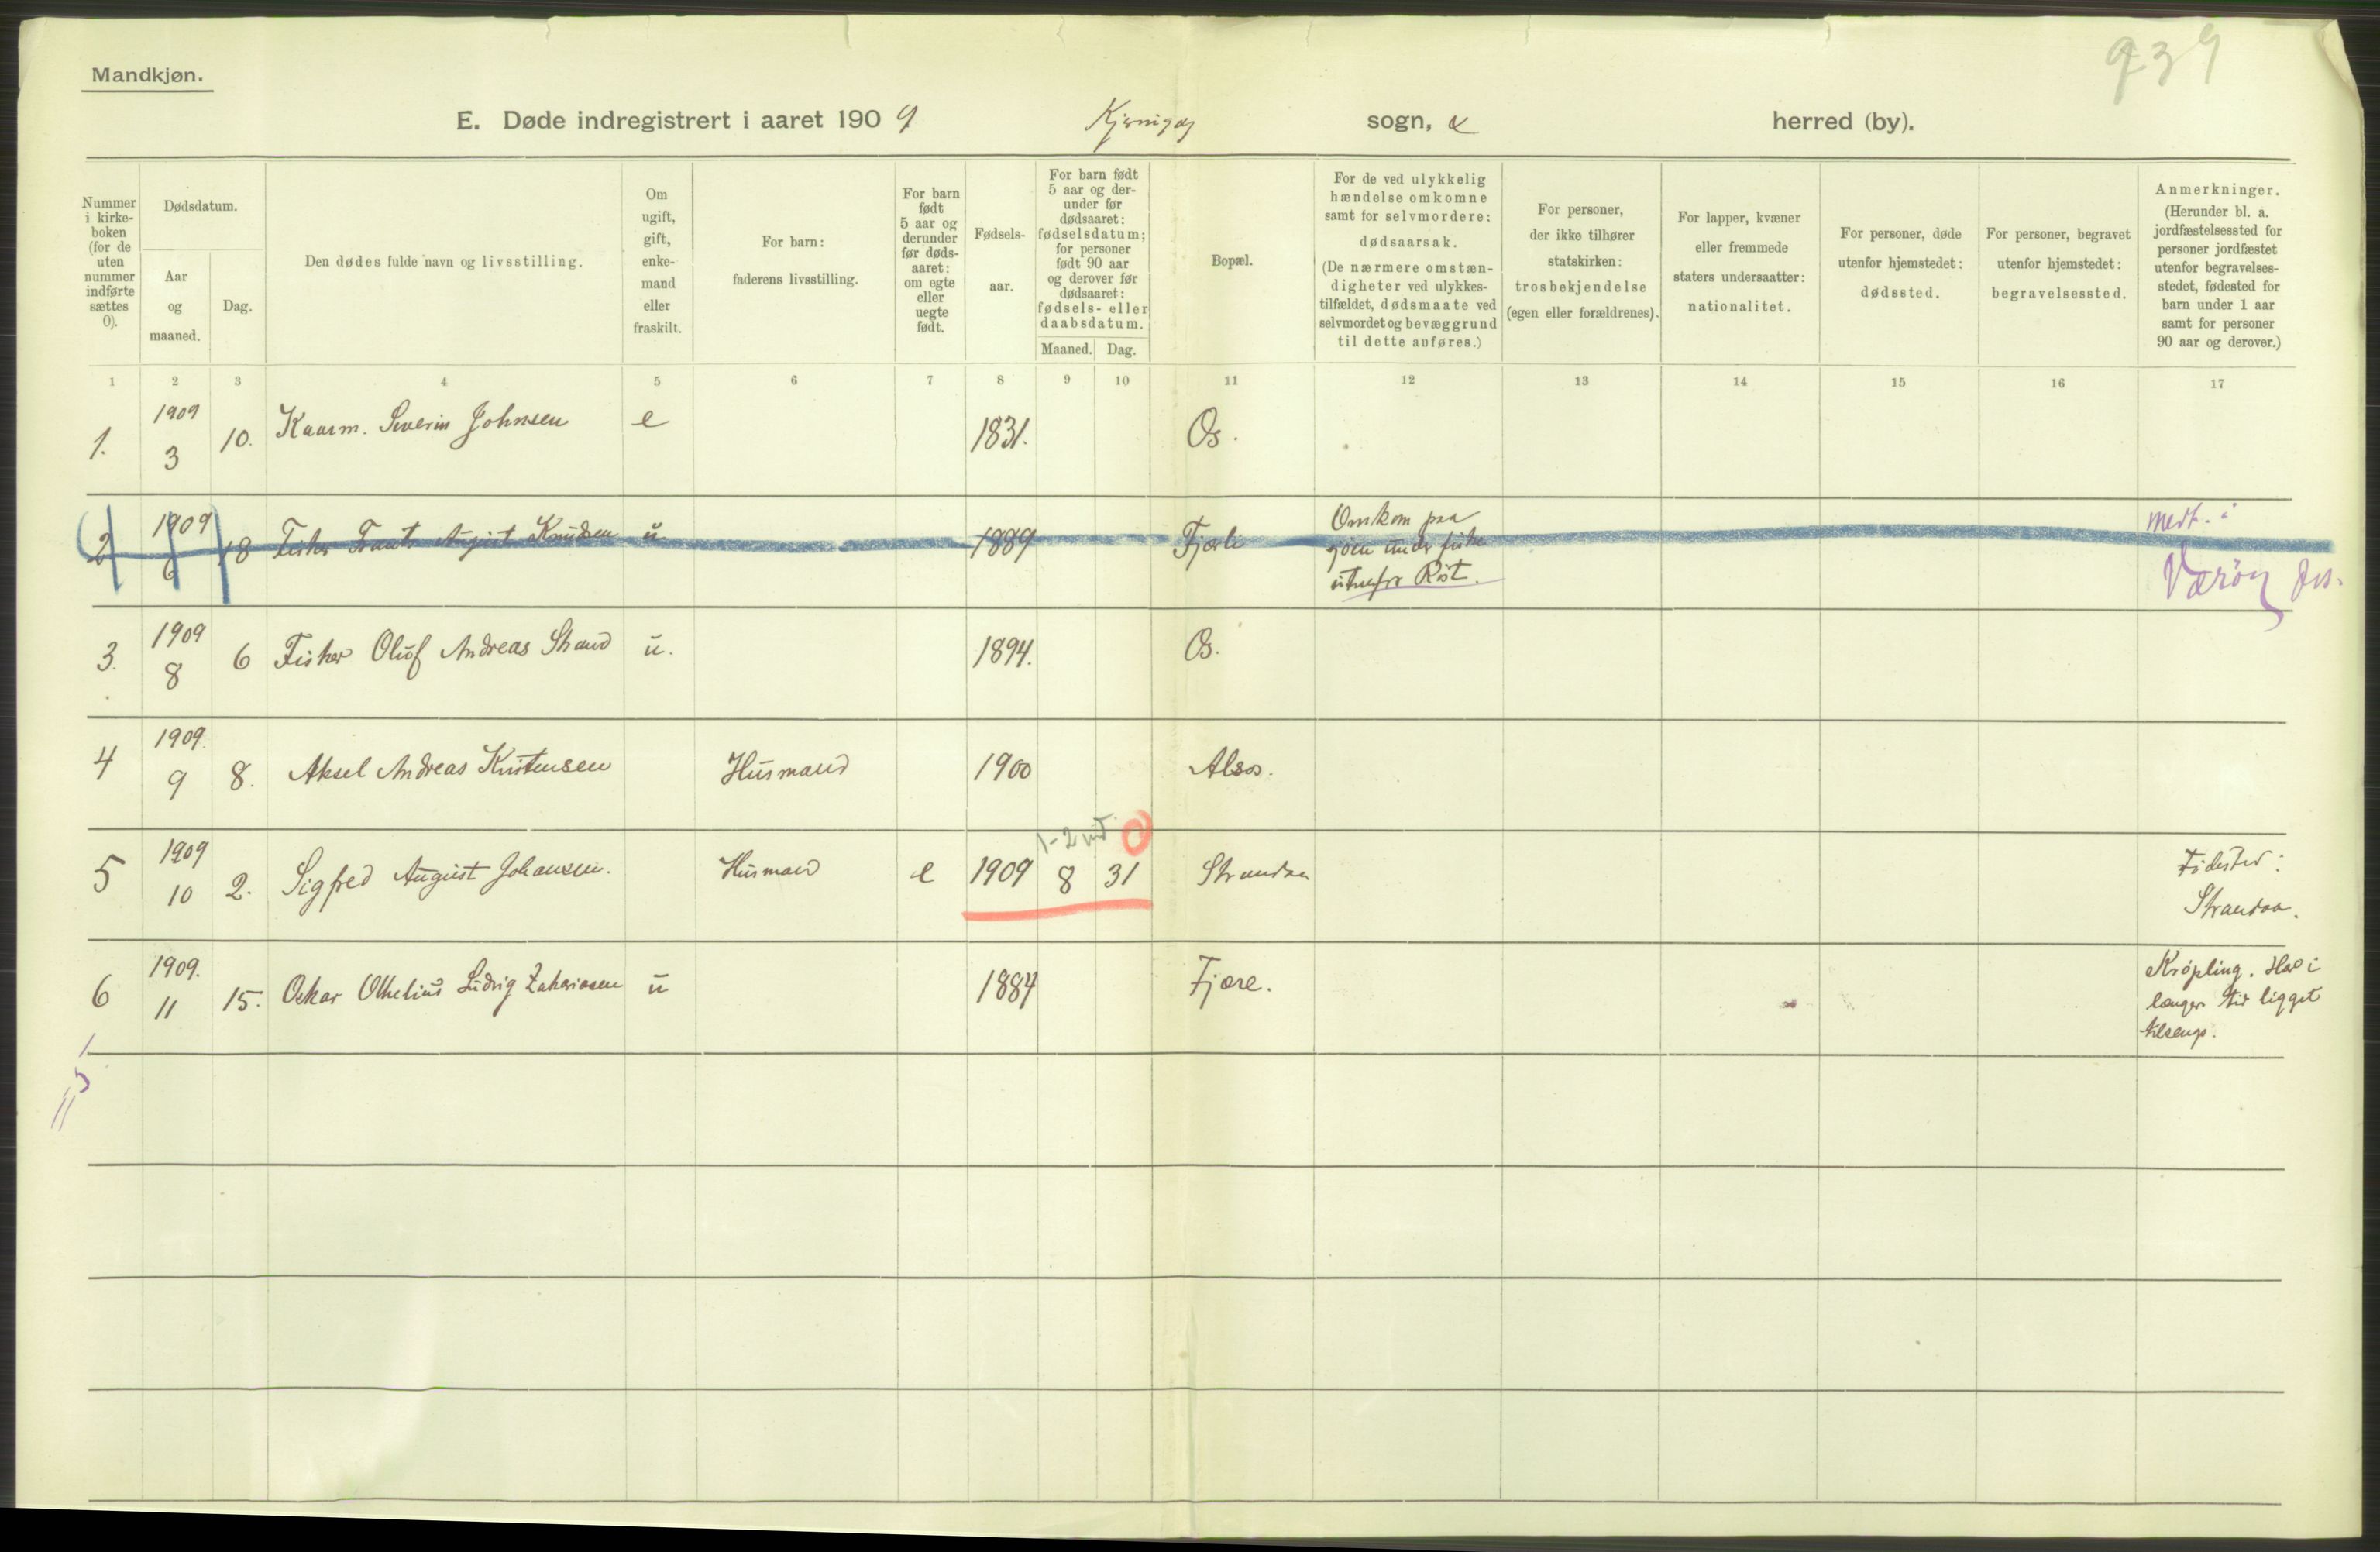 939
Mandkjøn.
E. Døde indregistrert i aaret 1909 Kjerringøy sogn, herred (by).
Nummer
i kirke-
boken
(for de
uten
nummer
indførte
sættes
0).
Dødsdatum.
Aar
og
maaned.
Dag.
Den dødes fulde navn og livsstilling.
Om
ugift,
gift,
enke-
mand
eller
fraskilt.
For barn:
faderens livsstilling.
For barn
født
5 aar og
derunder
før døds-
aaret:
om egte
eller
uegte
født.
Fødsels-
aar.
For barn født
5 aar og der-
under før
dødsaaret:
fødselsdatum;
for personer
født 90 aar
og derover før
dødsaaret:
fødsels- eller
daabsdatum.
Maaned. Dag.
Bopæl.
For de ved ulykkelig
hændelse omkomne
samt for selvmordere:
dødsaarsak.
(De nærmere omstæn-
digheter ved ulykkes-
tilfældet, dødsmaate ved
selvmordet og bevæggrund
til dette anføres.)
For personer,
der ikke tilhører
statskirken:
trosbekjendelse
(egen eller forældrenes).
For lapper, kvæner
eller fremmede
staters undersaatter:
nationalitet.
For personer, døde
utenfor hjemstedet:
dødssted.
For personer, begravet
utenfor hjemstedet:
begravelsessted.
Anmerkninger.
(Herunder bl. a.
jordfæstelsessted for
personer jordfæstet
utenfor begravelses-
stedet, fødested for
barn under 1 aar
samt for personer
90 aar og derover.)
1 2 3 4 5 6 7 8 9 10 11 12 13 14 15 16 17
1. 1909 3 10. Kaarm. Severin Johnsen e 1831. Os.
2 1909 6 18 Fisker Frants August Knudsen u 1889 Fjærli
Omkom paa
sjøen under fiske
utenfor Röst.
medt. i
Værøy
3. 1909 8 6 Fisker Oluf Andreas Strand u. 1894. Os.
4 1909. 9 8. Aksel Andreas Kristensen Husmand 1900 Alsos.
1-2 md
5 1909 10 2. Sigfred August Johansen. Husmand e 1909 8 31 Strandaa
Födested:
Strandaa.
6 1909. 11 15. Oskar Othelius Ludvig Zakariasen u 1884 Fjære.
Krøpling. Har i
længer tid ligget
tilsengs.
5